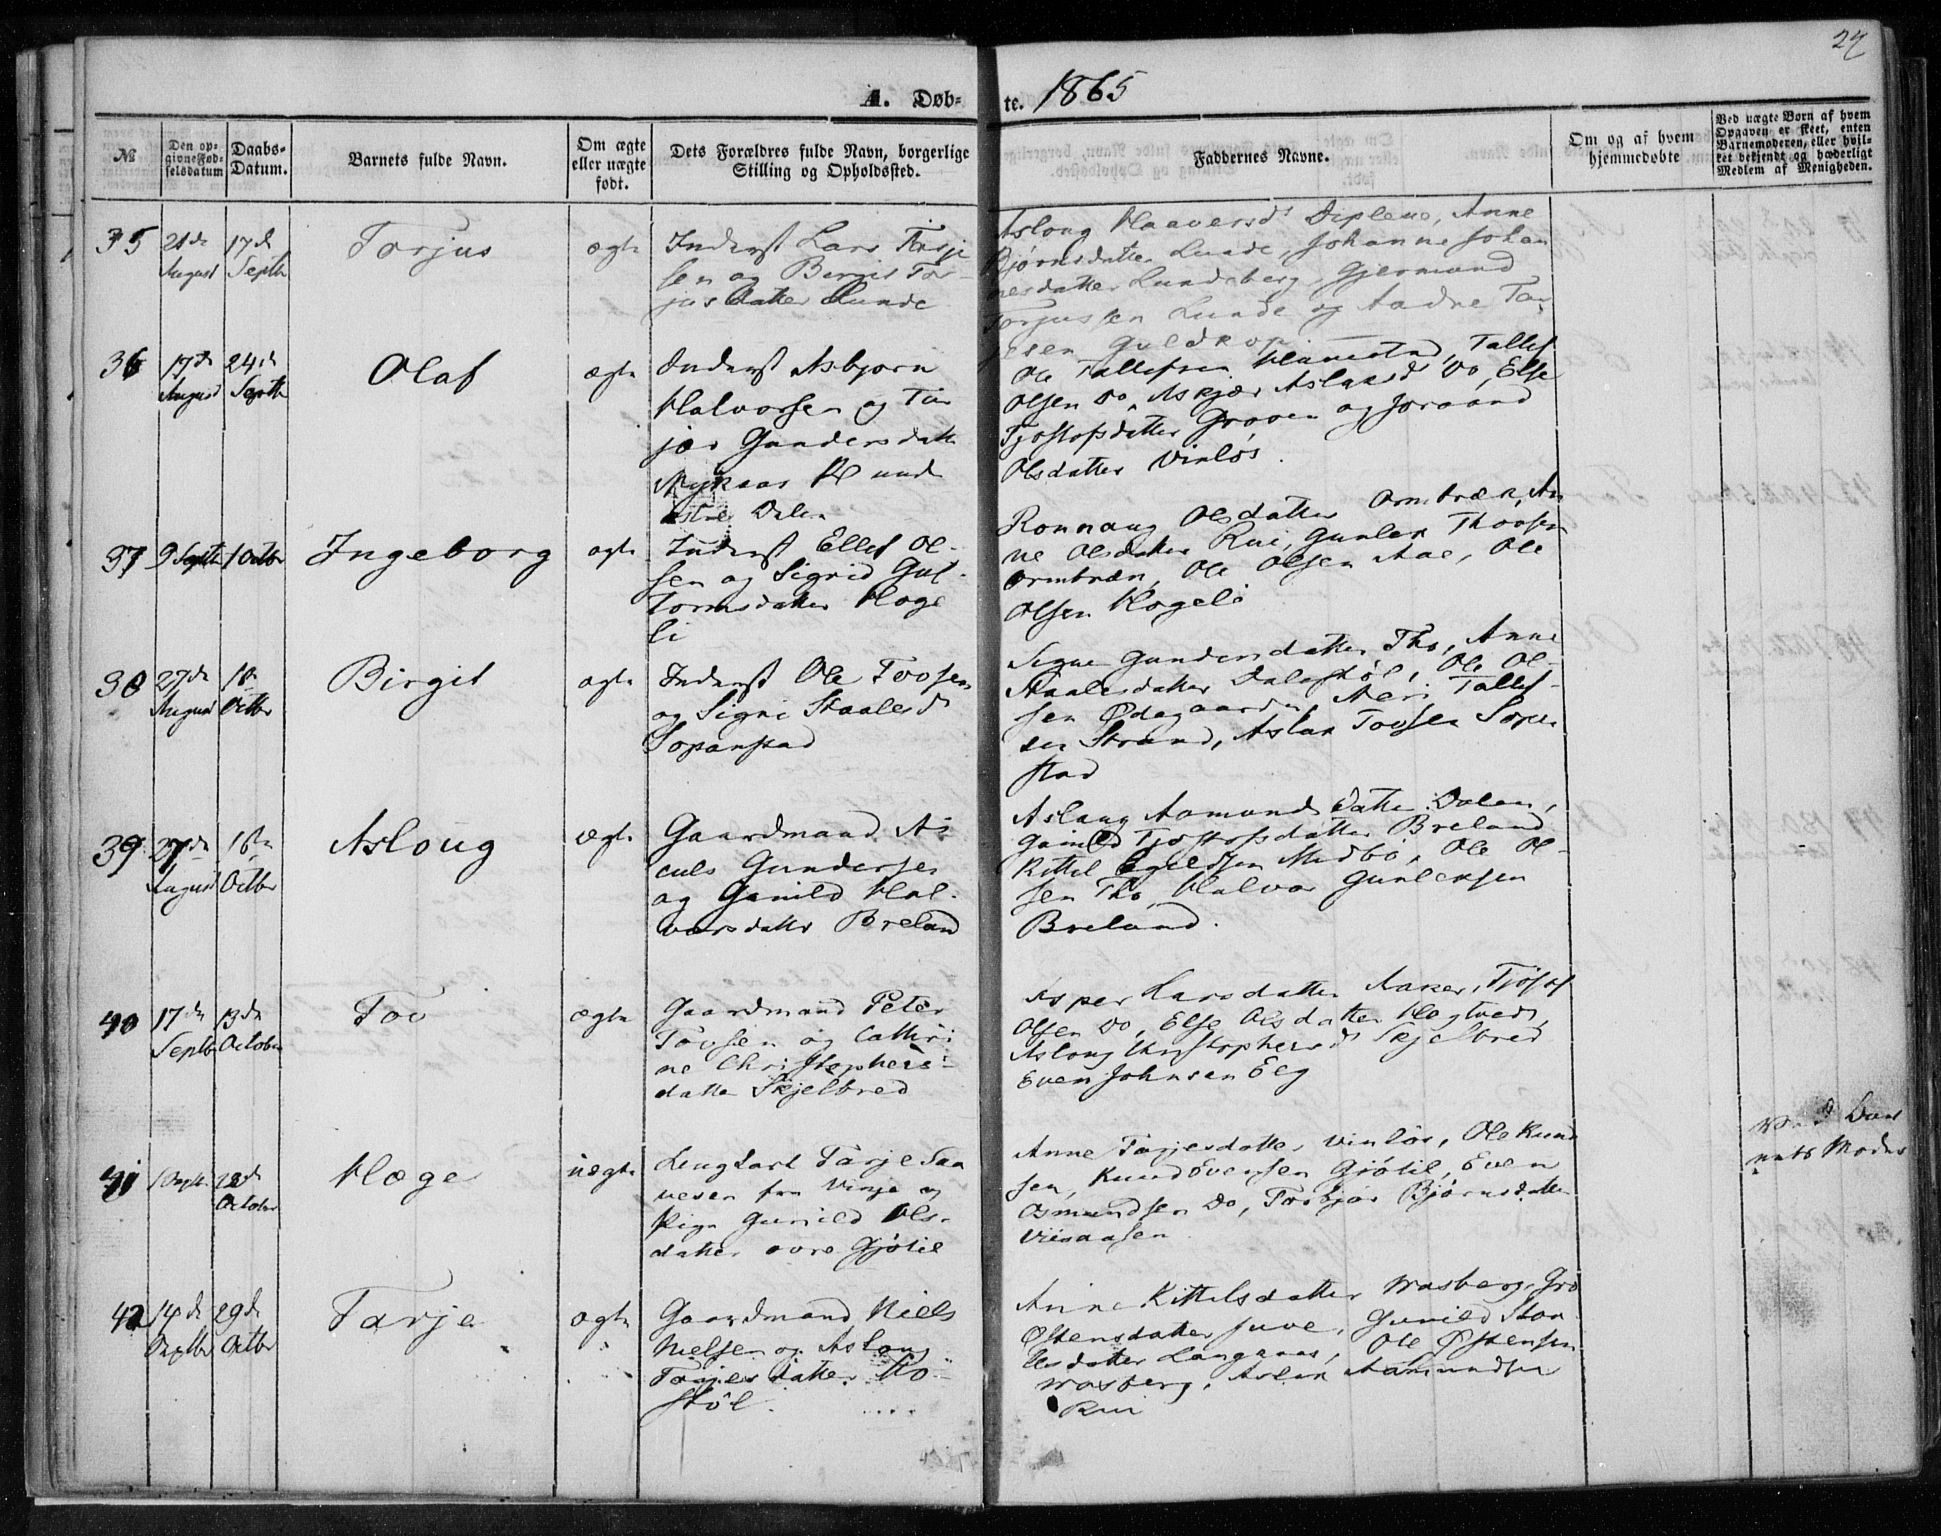 27
A. Døb-
te. 1865
№
Den op-
givne Fød-
selsdatum
Daabs-
Datum.
Barnets fulde Navn.
Om ægte
eller uægte
født.
Dets Forældres fulde Navn, borgerlige
Stilling og Opholdssted.
Faddernes Navne.
Om og af hvem
hjemmedøbte
Ved uægte Børn af hvem
Opgaven er skeet, enten
Barnemoderen, eller hvil-
ket bekjendt og hæderligt
Medlem af Menigheden.
35
21de
August
17d
Septb
Torjus
ægte
Inderst Lars Tarje
sen og Bergit Tor-
jusdatter Lunde
Asloug Haaversd Diplene, Anne
Bjørnsdatter Lunde, Johanne Johan
nesdatter Lundeberg, Gjermund
Torjussen Lunde og Aadne Tar
jesen Guldkop
36
17de
August
24de
Septb
Olaf
ægte
Inderst Asbjørn
Halvorsen og Tor
jør Gundersdatte
Mykaas
Dalen
Ole Tallefsen Hanestad, Tallef
Olsen Do, Askjær Aslaksd Do, Else
Tjostofsdatter Groven og Joraand
Olsdatter Vinløs.
37
9 Septb
1 Octbr
Ingeborg
ægte
Inderst Ellef Ol-
sen og Sigrid Gut-
tormsdatter Hoge
li
Ronnaug Olsdatter Ormbræk, An
ne Olsdatter Rui, Gunlek Thovsen
Ormbræk, Ole Olsen Aae, Ole
Olsen Hogeli
38
27de
August
1ste
Octbr
Birgit
ægte
Inderst Ole Tovsen
og Signe Staalesd
Sopanstad
Signe Gundersdatter Tho, Anne
Staalesdatter Dalestøl, Ole Ol-
sen Ødegaarden, Neri Tallef-
sen Strand, Aslak Tovsen Sopen
stad
39
27de
August
1ste
Octbr
Asloug
ægte
Gaardmand As
culs Gundersen
og Gunild Hal-
vorsdatter Breland
Aslaug Aamundsdatter Dalen,
Gunild Tjostofsdatter Breland
Kittel Egildsen Midbø, Ole Ol-
sen Tho, Halvor Gunleksen
Breland.
40
17de
Septbr
13de
October
Tov
ægte
Gaardmand Peter
Tovsen og Cathri
ne Christophers-
datter Skjelbred
Asper Larsdatter Aaker, Tjøstof
Olsen Do, Else Olsdatter Hegtved,
Asloug Christophersd Skjelbred
Even Johnsen Eeg
41
1 Septb
22d
October
Hæge
uægte
Lægdart Tarje Saa
vesen fra Vinje og
Pige Gunild Ols-
datter øvre Gjøtil
Anne Tarjesdatter Vinløs, Ole Knud
sen, Knud Evensen Gjøtil, Even
Osmundsen Do, Torbjør Bjørnsdatter
Viisaasen
Ved Bar
nets Moder
42
14de
Septbr
29d
Octbr
Tarje
ægte
Gaardmand Niels
Nielsen og Aslaug
Tarjesdatter Ko-
støl.
Anne Kittelsdatter Vraaberg, Gro
Østensdatter Juve, Gunild Staa
lesdatter Langaaas, Ole Østensen
Vraaberg, Aslak Aamundsen
Rui